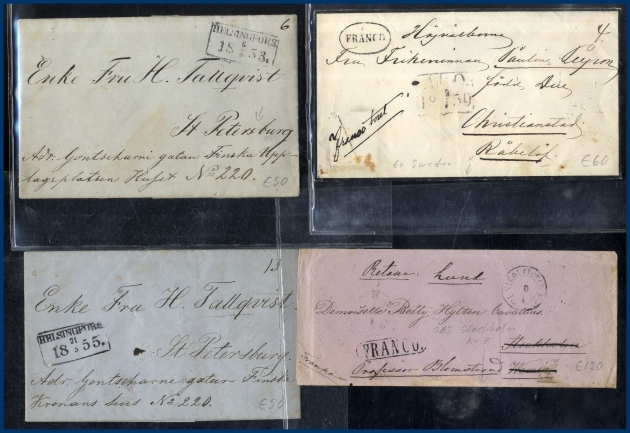 6
HELSINGFORS
18 53.
Enke Fru H. Tallqvist
St Petersburg
Adr. Gontscharni gatan Finska Upp-
lagsplatsen Huset No 220.
€50
FRANCO
4
Högvälborna
Fru Friherinnan Pauline
född Due
Christianstad
Råbelöf
Franco
to Sweden
€60
13
Enke Fru H. Tallqvist.
HELSINGFORS
21
18 55.
St Petersburg.
Adr. Gontscharne gatan Finska
Kronans hus No 220.
€50
Retour Lund
Demoiselle Betty Hylten Cavallius
OBS Stockholm
FRANCO.
Stockholm
Professor Blomstrand
€120